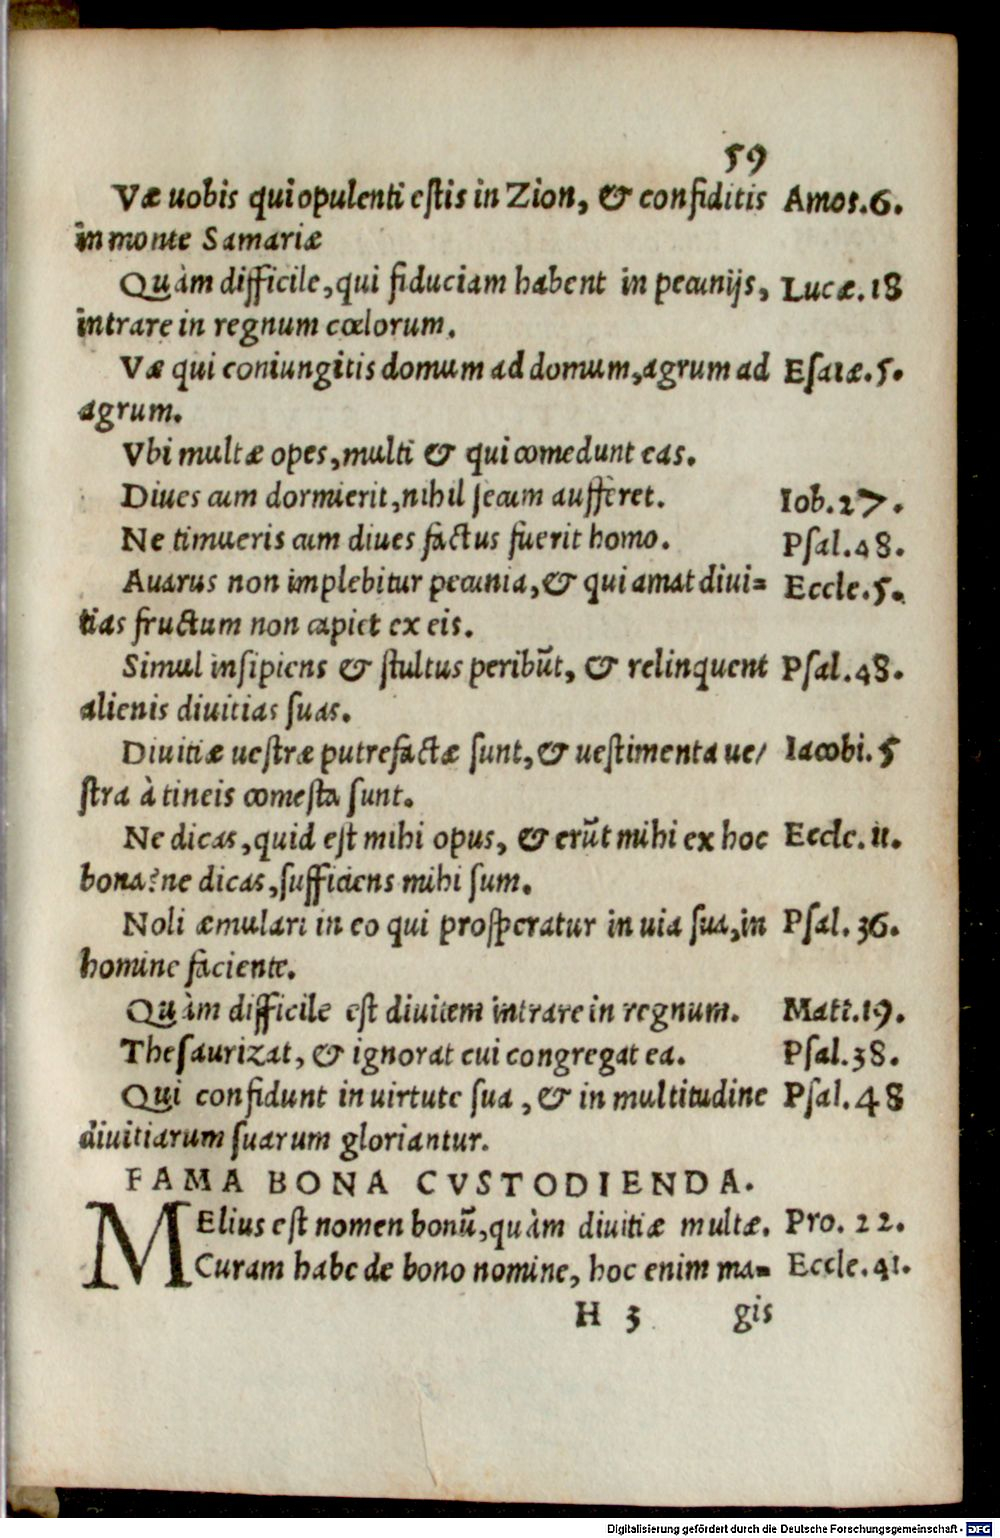 59
Væ uobis qui opulenti estis in Zion, & confiditis Amos.6.
in monte Samariæ
Quàm difficile, qui fiduciam habent in pecunijs, Lucæ.18
intrare in regnum cœlorum.
Væ qui coniungitis domum ad domum, agrum ad Esaiæ.5.
agrum.
Vbi multæ opes, multi & qui comedunt eas.
Diues cum dormierit, nihil secum aufferet. Iob.27.
Ne timueris cum diues factus fuerit homo. Psal.48.
Auarus non implebitur pecunia, & qui amat diui= Eccle.5.
tias fructum non capiet ex eis.
Simul insipiens & stultus peribūt, & relinquent Psal.48.
alienis diuitias suas.
Diuitiæ uestræ putrefactæ sunt, & uestimenta ue/ Iacobi.5
stra à tineis comesta sunt.
Ne dicas, quid est mihi opus, & erūt mihi ex hoc Eccle.11.
bona? ne dicas, sufficiens mihi sum.
Noli æmulari in eo qui prosperatur in uia sua, in Psal.36.
homine faciente.
Quàm difficile est diuitem intrare in regnum. Matt.19.
Thesaurizat, & ignorat cui congregat ea. Psal.38.
Qui confidunt in uirtute sua, & in multitudine Psal.48
diuitiarum suarum gloriantur.
FAMA BONA CVSTODIENDA.
MElius est nomen bonū, quàm diuitiæ multæ. Pro.22.
Curam habe de bono nomine, hoc enim ma= Eccle.41.
H 3 gis
Digitalisierung gefördert durch die Deutsche Forschungsgemeinschaft - DFG